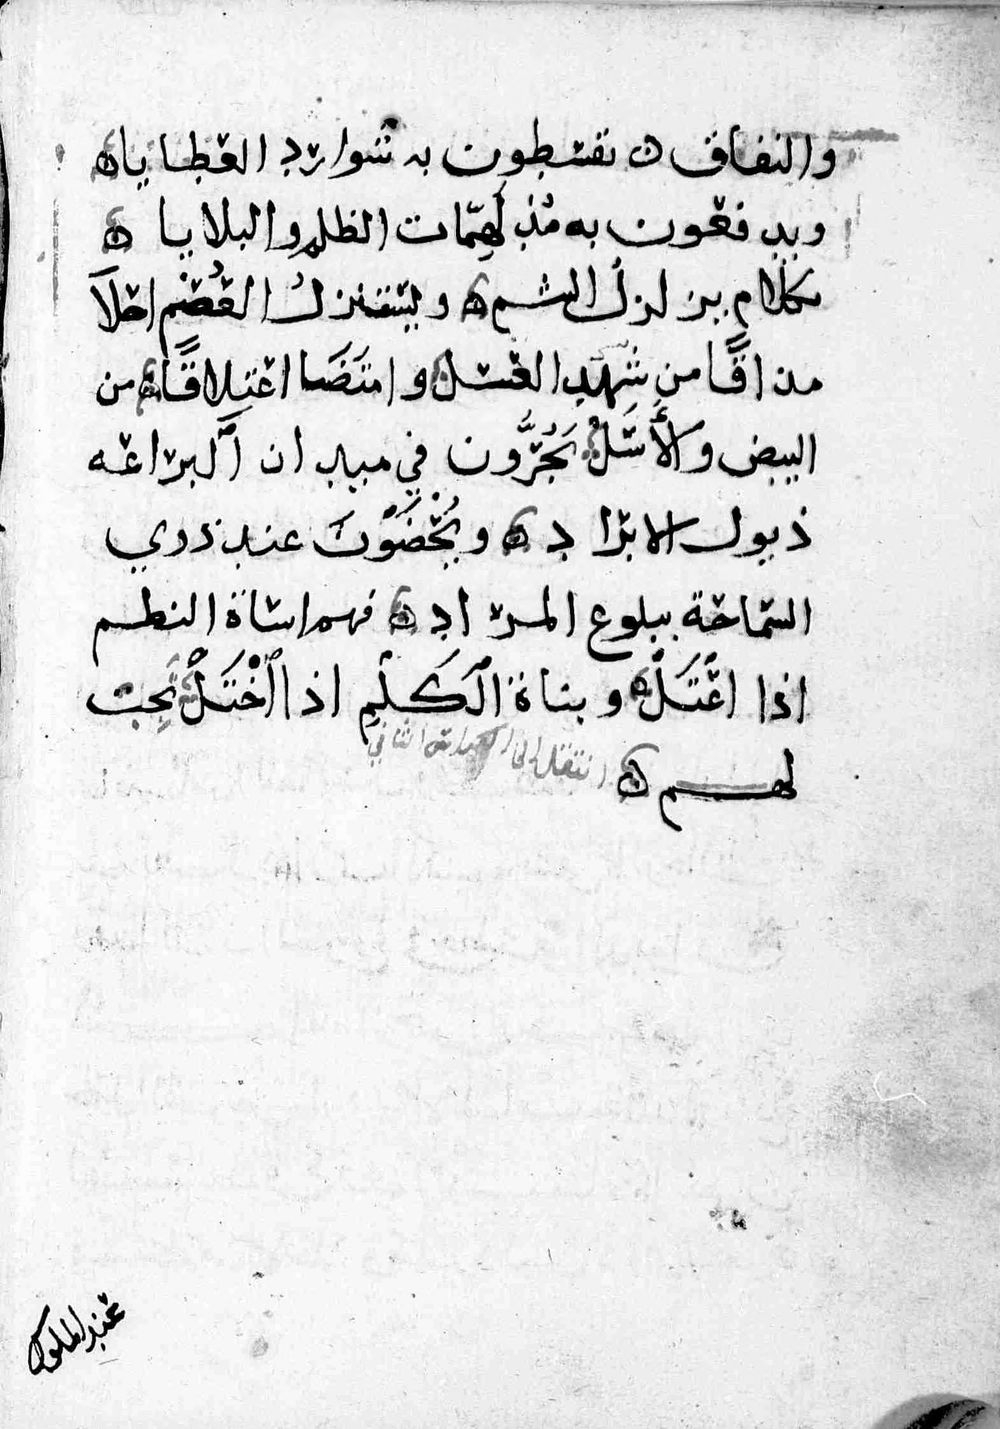 والنفاق ۞ نقسطون به شوارد العطايا ۞
ويدفعون به مدلهمات الظلم والبلايا ۞
بكلام يزلزل الشم ۞ ويستنزل العصم احلا
مذاقا من شهد العسل ۞ وامضا اعتلاقا ۞ من
البيض والأسل ۞ يجرون في ميدان البراعه
ذيول الابراد ۞ ويحضون عند ذوي
السماحة ببلوع المراد ۞ فهم اساة النظم
اذا اعتل ۞ وبناة الكلم اذا اختل ۞ يجب
لهم ۞ انتقل الى الثاني
عبد الملوك